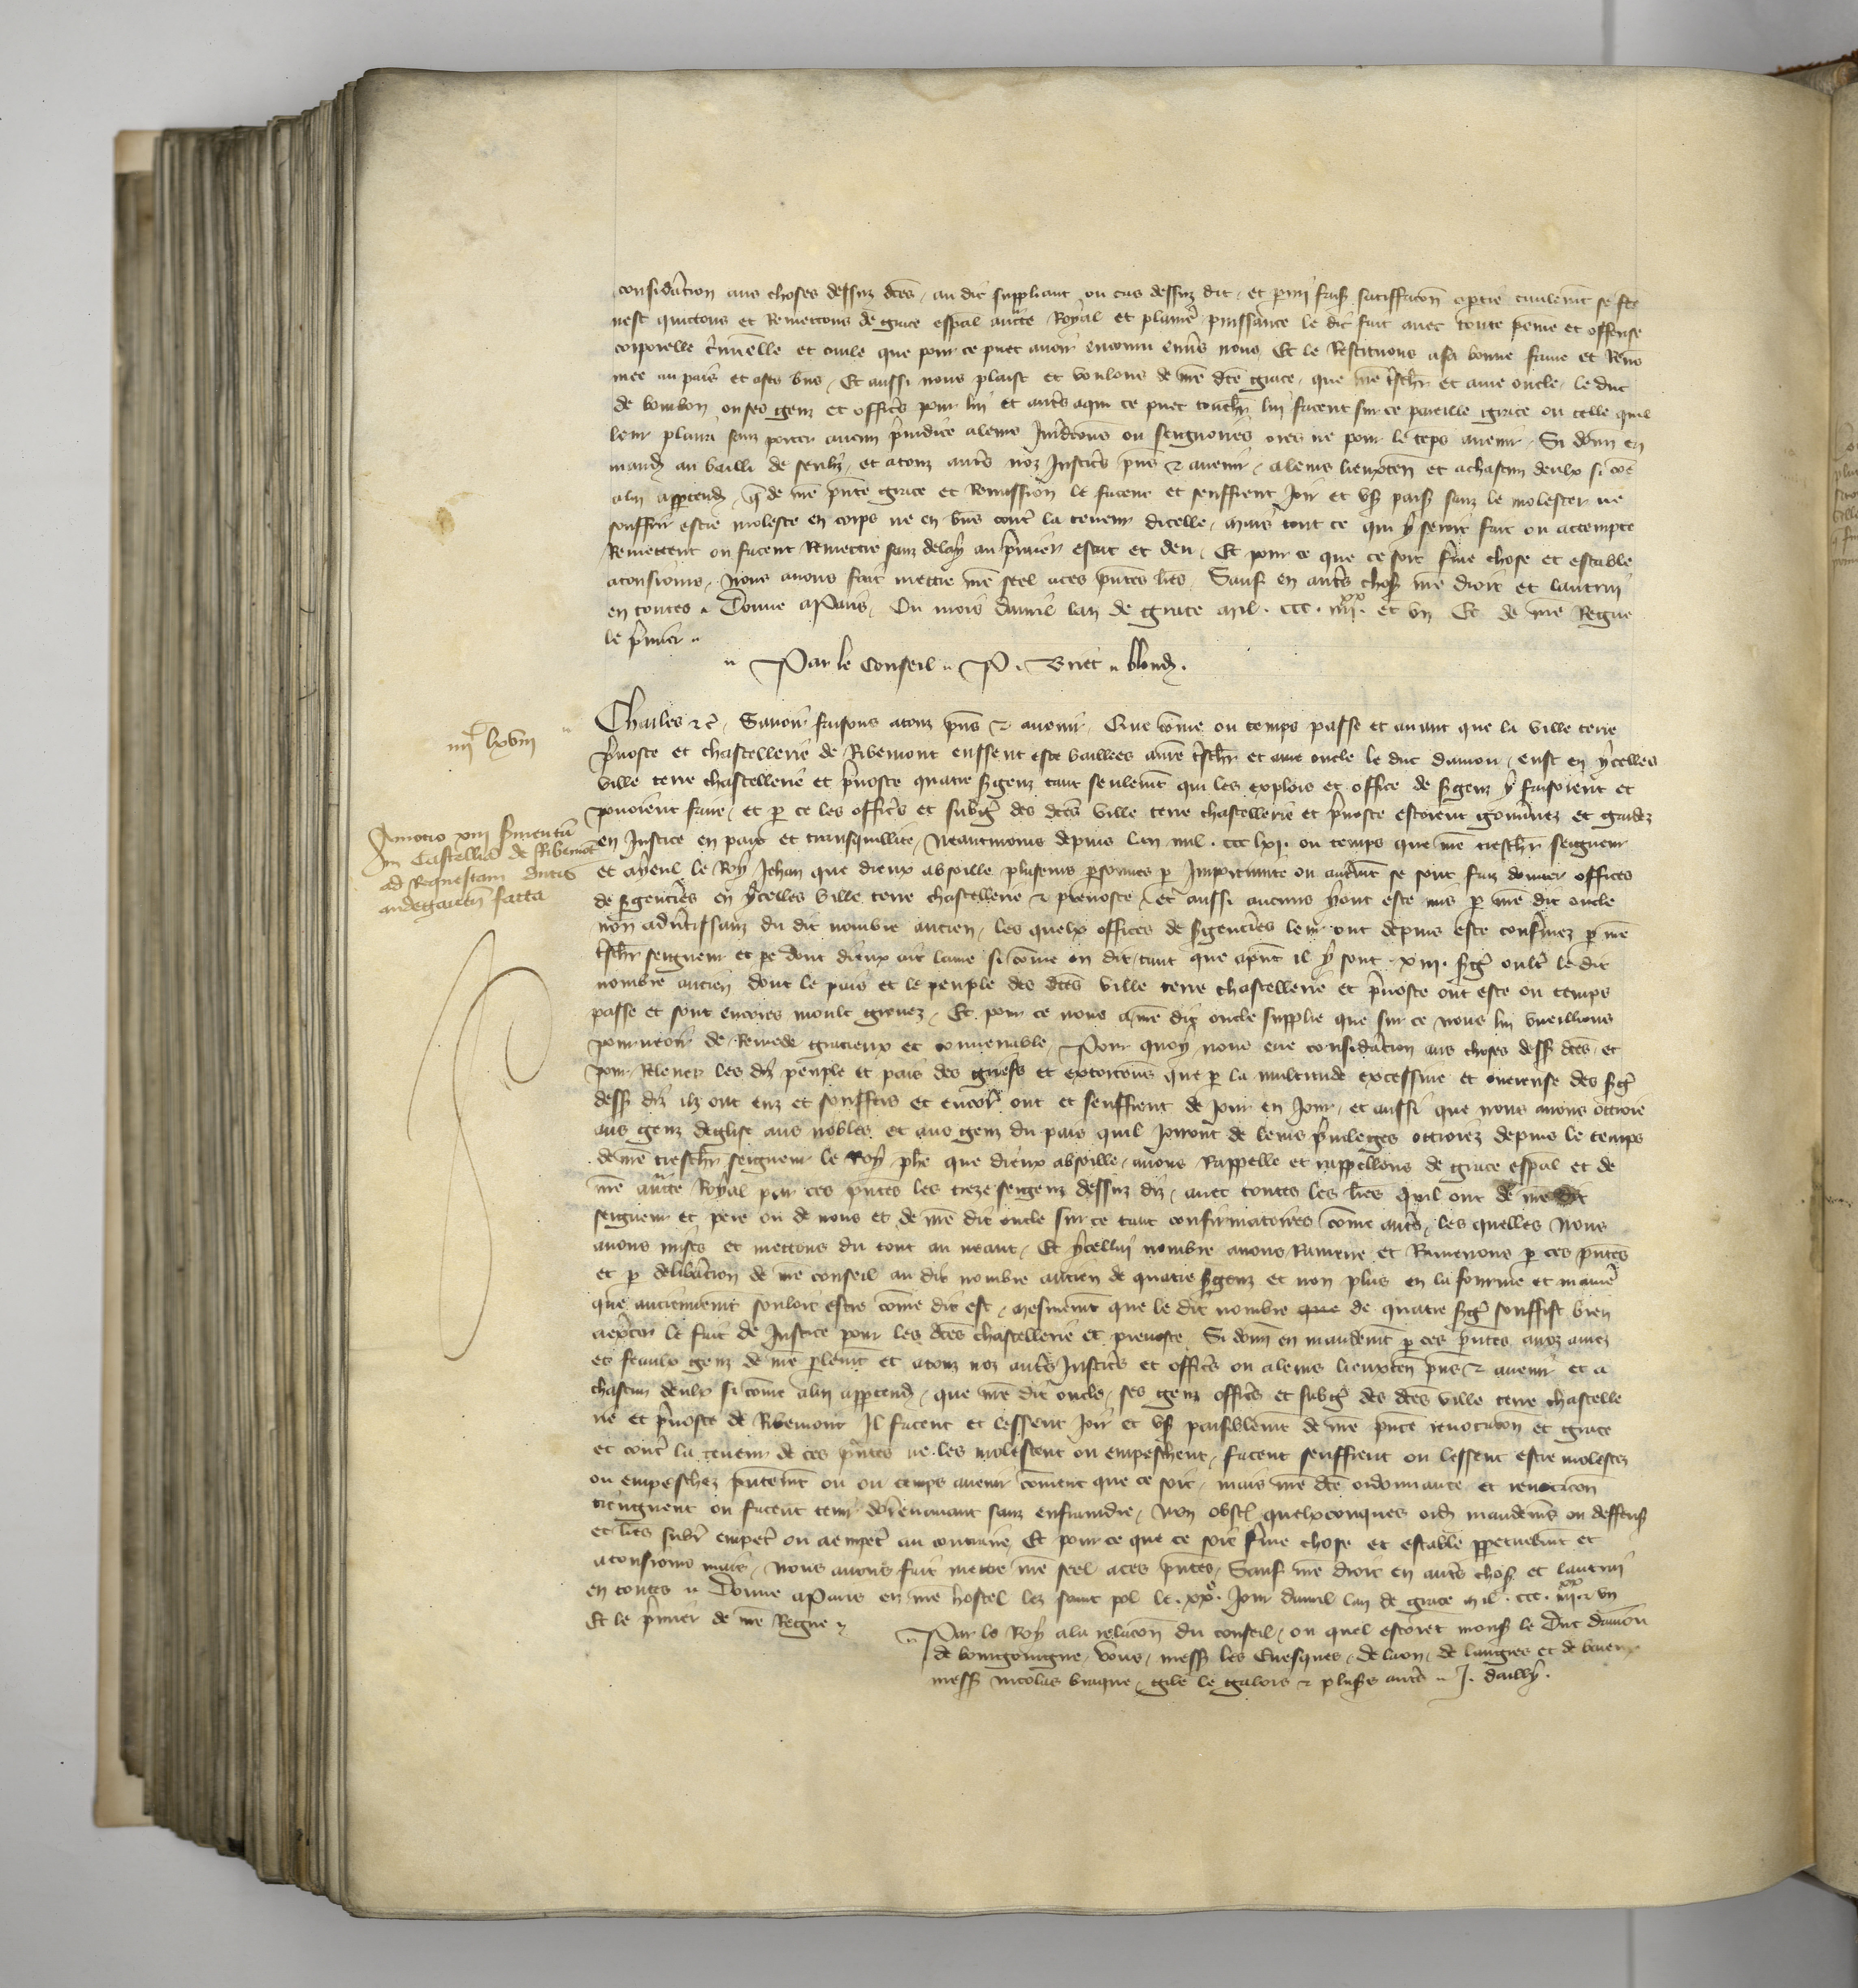 considacion aus choses dessuz dces, au dit suppliant ou cas dessuz dit, et pmi satiffacon
quictons et Remettons de grace espal aucte Royal et plaine puissance le dit fait avec toute peine et offense
corporelle criminelle et civile que pour ce puet avoir encouru envs nous Et le Restituons a sa bonne fame et Reno
mee au pais et a ses biens, Et aussi nous plaist et voulons de nre dce grace, que nre tschr et ame oncle, le duc
de bourbon ou ses genz et officrs pour lui et autrs a qui ce puet touchr lui facent sur ce pareille grace ou telle quil
leur plaira sanz porter aucun preiudice a leurs Juridcons ou seignories ores ne pour le teps avenir, Si donn en
mand au bailli de senliz, et a touz autrs noz Justicrs pns et avenir, a leurs lieuxten et a chascun deulx si coe
a lui apptendra, q de nre pnte grace et Remission le facent et seuffrent Joir et us paisi sanz le molester ne
souffrir estre moleste en corps ne en biens contr la teneur dicelle, mais tout ce qui y seroit fait ou actempte
Remettent ou facent Remettre sanz delay au premier estat et deu, Et pour ce que ce soit ferme chose et estable
a tousiours, Nous avons fait mettre nre seel a ces pntes lres, Sauf en autrs chos nre droit et lautrui
en toutes. Donne a Paris, Ou mois davril lan de grace mil. ccc. iiii xx. et un Et de nre Regne
le premier
Par le Conseil. P. Briet. blond.
iiii c lxviii
Charles etc. Savoir faisons a touz pns et avenir, Que come ou temps passe et avant que la ville terre
prevoste et chastellerie de Ribemont eussent este baillees a nre tschr et ame oncle le duc danjou, eust en ycelles
ville terre chastellerie et prevoste quatre sergenz tant seulemt qui les explois et office de sergenz y faisoient et
povoient faire, et p ce les officrs et subgz des dces ville terre chastellerie et prevoste estoient gouvnez et gardez
Amotio xiii servientu
in Castellia de Ribemot
ad Requestam ducis
andegaven facta
en Justice en paix et transquillite, Neantmoins depuis lan mil. ccc lxi. ou temps que nre treschr seigneur
et ayeul le Roy Jehan que dieux absoille plusieurs personnes p Importunite ou autremt se sont faiz donner offices
de sergenties en ycelles ville terre chastellerie et prevoste, Et aussi aucuns y ont este mis p nre dit oncle
non advertissanz du dit nombre ancien, les quelx offices de sergenties leur ont depuis este confermez p nre
tschr seigneur et pe dont dieux ait lame si come on dit, tant que a pnt il y sont. xiii. sgz oultr le dit
nombre ancien dont le pais et le peuple des dces ville terre chastellerie et prevoste ont este ou temps
passe et sont encores moult grevez, Et pour ce nous a nre dit oncle supplie que sur ce nous lui vueillions
pourveoir de Remede gracieux et convenable, Pour quoy nous eue considacion aus choses dess dces, et
pour Relever les diz peuple et pais des griefs et extorcons que p la multitude excessive et onereuse des sgz
dess diz ilz ont euz et souffers et encor ont et seuffrent de Jour en Jour, et aussi que nous avons ottroie
aus genz deglise aus nobles et aus genz du pais quil Jorront de leurs privileges ottroiez depuis le temps
de nre treschr seigneur le Roy phe que dieux absoille, avons Rappelle et rappellons de grace espal et de
nre aucte Royal par ces pntes les treze sergenz dessuz diz, avec toutes les lres quil ont de nre dit
seigneur et pere ou de nous et de nre dit oncle sur ce tant confirmatoires come autrs, les quelles Nous
avons mises et mettons du tout au neant, Et ycellui nombre avons Ramene et Ramenons p ces pntes
et p delibacion de nre conseil au dit nombre ancien de quatre sergenz et non plus en la fourme et manie
que anciennemt souloit estre come dit est, mesmemt que le dit nombre que de quatre sgz souffist bien
a exercer le fait de Justice pour les dces chastellerie et prevoste, Si donn en mandemt p ces pntes a noz amez
et feaulx genz de nre plemt et a touz noz autrs Justicrs et officrs ou a leurs lieuxten pns et avenir et a
chascun deulx si come a lui apptendra, que nre dit oncle, ses genz officrs et subgz des dces ville terre chastelle
rie et prevoste de Ribemont Il facent et lessent Joir et us paisiblemt de nre pnte revocacion et grace
et contr la teneur de ces pntes ne les molestent ou empeschent, facent seuffrent ou lessent estre molestez
ou empeschez pntemt ou ou temps avenir coment que ce soit, mais nre dce ordonnance et revocacion
tiengnent ou facent tenir dorenavant sanz enfraindre, Non obst quelxconques ord mandemens ou deffens
et lres subr empetr ou a empetr au contraire, Et pour ce que ce soit ferme chose et estable ppetuelmt et
a tousiours mais, Nous avons fait mettre nre seel a ces pntes, Sauf nre droit en autrs chos et lautrui
en toutes. Donne a Paris en nre hostel lez saint pol le. xx e. Jour davril lan de grace mil. ccc. iiii xx. et un
Et le premier de nre Regne
Par le Roy a la relacon du conseil, ou quel estoiet mons le Duc daniou
de bourgoingne, vous, mess les Evesques, de laon, de langres et de baieux
mess nicolas braque, gile le galois et plusrs autrs. J. dailly.